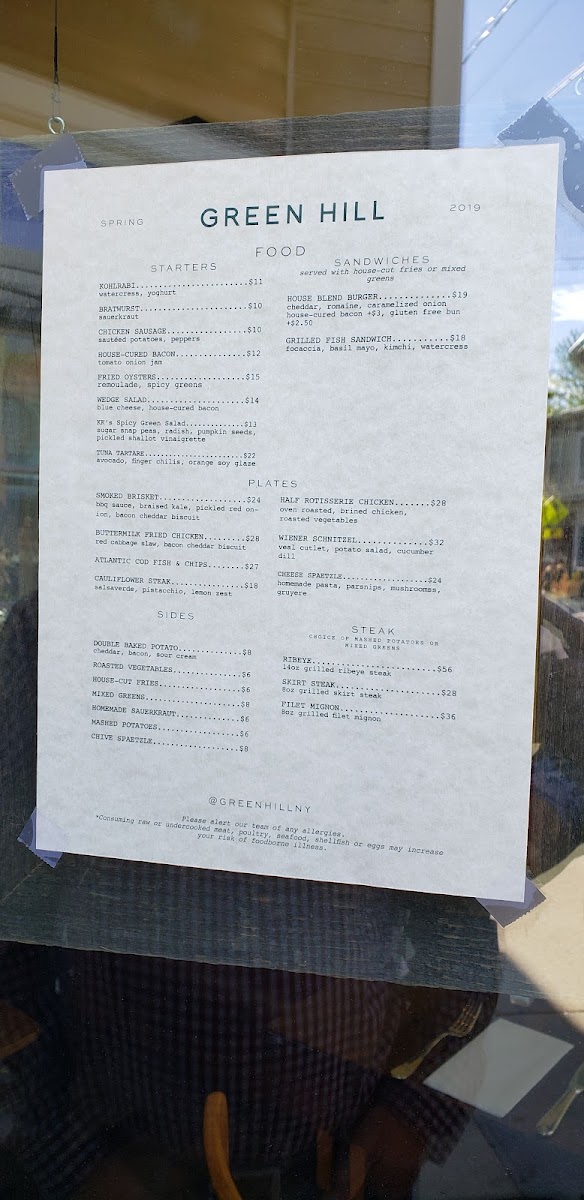 SPRING GREEN HILL 2019
FOOD
STARTERS
KOHLRABI.......................$11
watercress, yoghurt
BRATWURST......................$10
sauerkraut
CHICKEN SAUSAGE................$10
sautéed potatoes, peppers
HOUSE-CURED BACON..............$12
tomato onion jam
FRIED OYSTERS..................$15
remoulade, spicy greens
WEDGE SALAD....................$14
blue cheese, house-cured bacon
KK's Spicy Green Salad.............$13
sugar snap peas, radish, pumpkin seeds,
pickled shallot vinaigrette
TUNA TARTARE.....................$22
avocado, finger chilis, orange soy glaze
SANDWICHES
served with house-cut fries or mixed
greens
HOUSE BLEND BURGER..............$19
cheddar, romaine, caramelized onion
house-cured bacon +$3, gluten free bun
+$2.50
GRILLED FISH SANDWICH...........$18
focaccia, basil mayo, kimchi, watercress
PLATES
SMOKED BRISKET.................$24
bbq sauce, braised kale, pickled red on-
ion, bacon cheddar biscuit
BUTTERMILK FRIED CHICKEN........$28
red cabbage slaw, bacon cheddar biscuit
ATLANTIC COD FISH & CHIPS.......$27
CAULIFLOWER STEAK...............$18
salsaverde, pistacchio, lemon zest
HALF ROTISSERIE CHICKEN.......$28
oven roasted, brined chicken,
roasted vegetables
WIENER SCHNITZEL..............$32
veal cutlet, potato salad, cucumber
dill
CHEESE SPAETZLE.................$24
homemade pasta, parsnips, mushroomss,
gruyere
SIDES
DOUBLE BAKED POTATO.............$8
cheddar, bacon, sour cream
ROASTED VEGETABLES..............$6
HOUSE-CUT FRIES.................$6
MIXED GREENS....................$8
HOMEMADE SAUERKRAUT.............$6
MASHED POTATOES.................$6
CHIVE SPAETZLE..................$8
STEAK
CHOICE OF MASHED POTATOES OR
MIXED GREENS
RIBEYE.........................$56
14oz grilled ribeye steak
SKIRT STEAK....................$28
8oz grilled skirt steak
FILET MIGNON...................$36
8oz grilled filet mignon
@GREENHILLNY
Please alert our team of any allergies.
*Consuming raw or undercooked meat, poultry, seafood, shellfish or eggs may increase
your risk of foodborne illness.